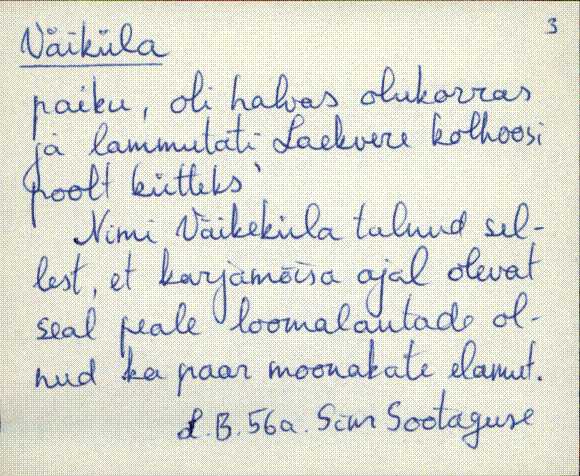 3
Väiküla
paiku, oli halvas olukorras
ja lammutati Laekvere kolhoosi
poolt kütteks.
Nimi Väikeküla tulnud sel-
lest, et karjamõisa ajal olevat
seal peale loomalautade ol-
nud ka paar moonakate elamut.
L.B. 56a. Siin Sootaguse